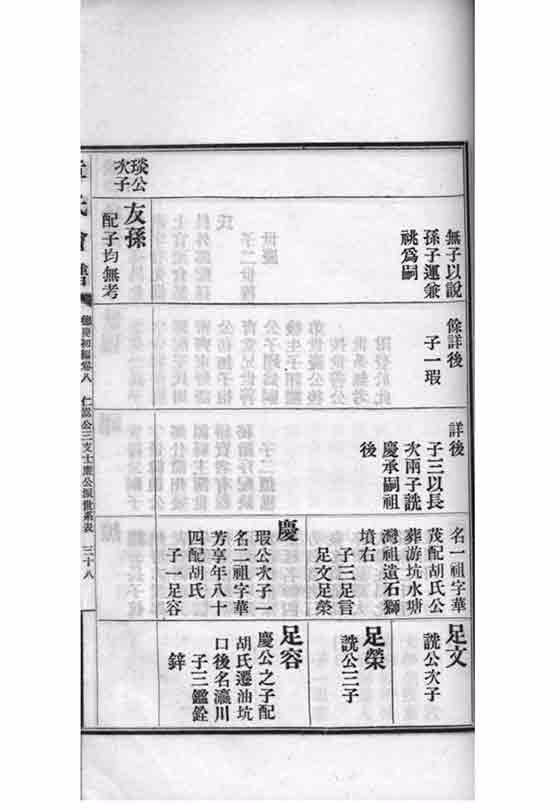 琰公
次子
無子以說
孫子運兼
祧爲嗣
友孫
配子均無考
餘詳後
子一瑕
詳後
子三以長
次兩子詵
慶承嗣祖
後
名一祖字華
茂配胡氏公
葬游坑水塘
灣祖遺石獅
墳右
子三足言
足文足榮
慶
瑕公次子一
名二祖字華
芳享年八十
四配胡氏
子一足容
足文
詵公次子
足榮
詵公三子
足容
慶公之子配
胡氏遷油坑
口後名瀛川
子三鑑銓
鋅
氏會
德慶初編卷八
仁嵩公三支士公派世系表
三十八